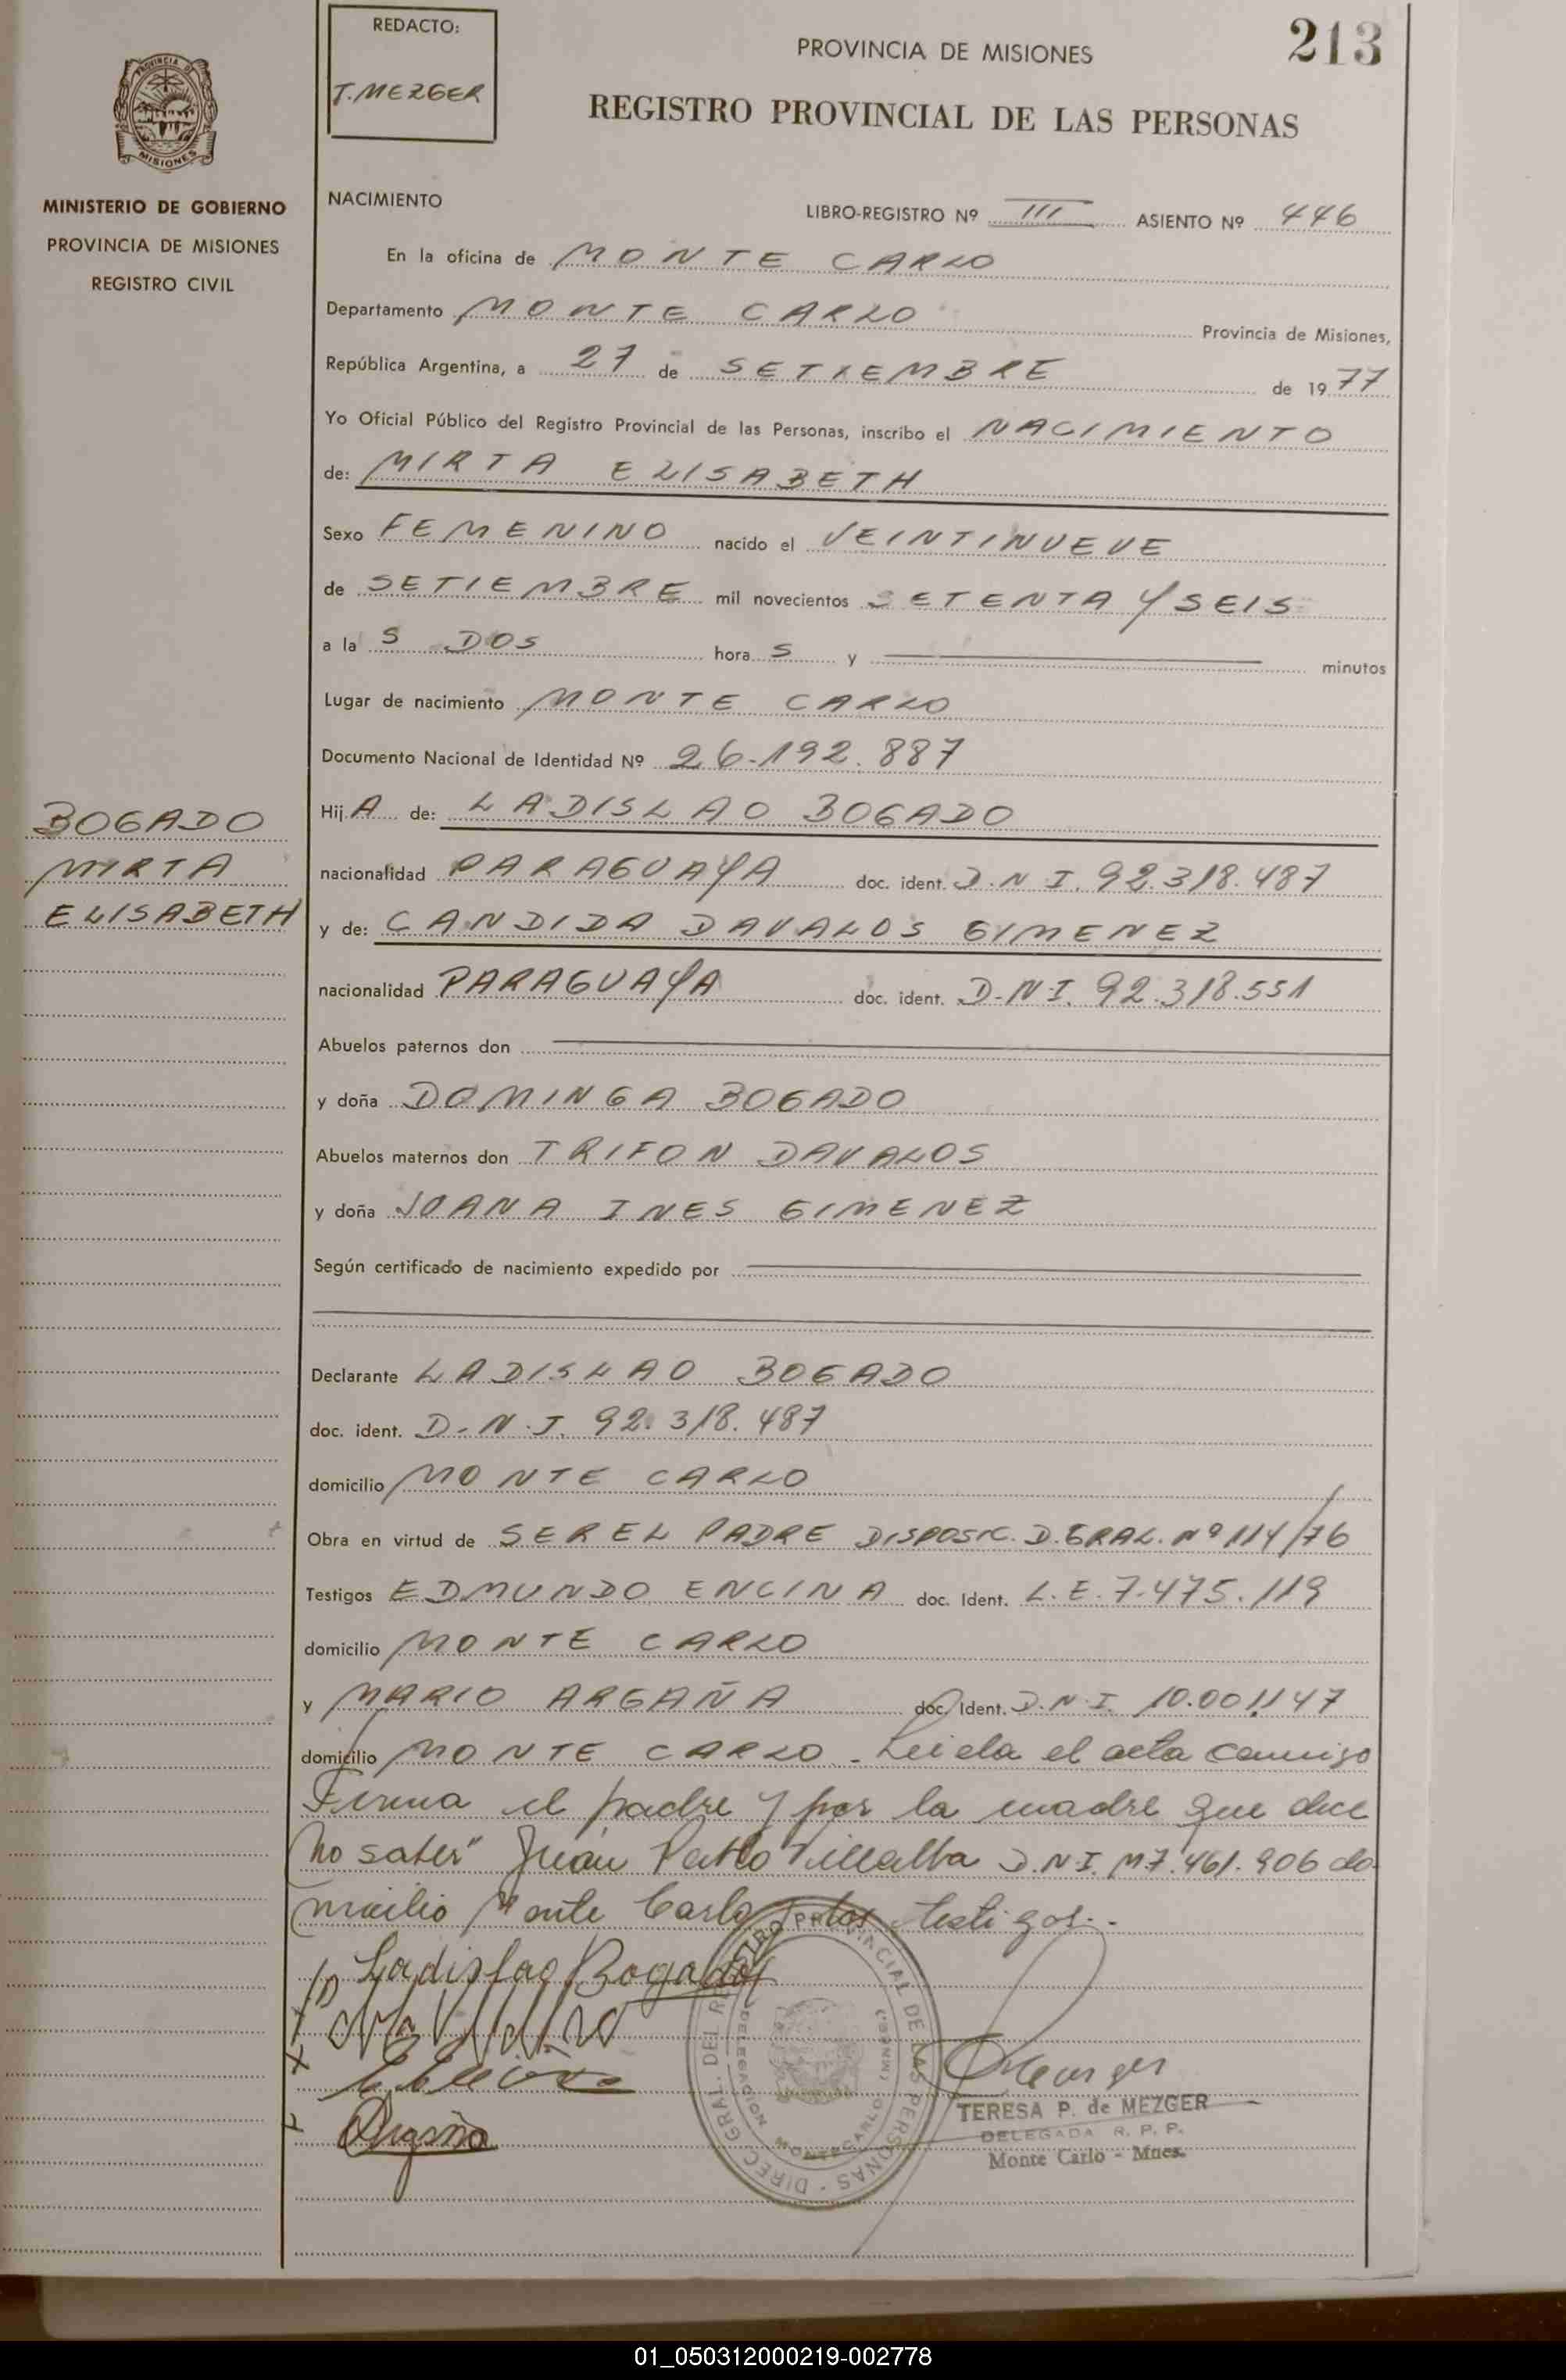 213
REDACTO:
T. MEZGER
PROVINCIA DE MISIONES
REGISTRO PROVINCIAL DE LAS PERSONAS
MISIONES
MINISTERIO DE GOBIERNO
PROVINCIA DE MISIONES
REGISTRO CIVIL
NACIMIENTO
LIBRO-REGISTRO Nº III ASIENTO Nº 446
En la oficina de MONTE CARLO
Departamento MONTE CARLO Provincia de Misiones,
República Argentina, a 27 de SETIEMBRE de 1977
Yo Oficial Público del Registro Provincial de las Personas, inscribo el NACIMIENTO
de: MIRTA ELISABETH
Sexo FEMENINO nacido el VEINTINUEVE
de SETIEMBRE mil novecientos SETENTA Y SEIS
a la S DOS hora S y minutos
Lugar de nacimiento MONTE CARLO
Documento Nacional de Identidad Nº 26.192.887
BOGADO
MIRTA
ELISABETH
Hij A de: LADISLAO BOGADO
nacionalidad PARAGUAYA doc. ident. D.N.I. 92.318.487
y de: CANDIDA DAVALOS GIMENEZ
nacionalidad PARAGUAYA doc. ident. D.N.I. 92.318.551
Abuelos paternos don
y doña DOMINGA BOGADO
Abuelos maternos don TRIFON DAVALOS
y doña JOANA INES GIMENEZ
Según certificado de nacimiento expedido por
Declarante LADISLAO BOGADO
doc. ident. D.N.I. 92.318.487
domicilio MONTE CARLO
Obra en virtud de SER EL PADRE DISPOSIC. D. GRAL. Nº 114/76
Testigos EDMUNDO ENCINA doc. Ident. L.E. 7.475.119
domicilio MONTE CARLO
y MARIO ARGAÑA doc. Ident. D.N.I. 10.001.147
domicilio MONTE CARLO. Leida el acta conmigo
Firma el padre y por la madre que dice
"no saber" Juan Pablo Villalba D.N.I. M 7.461.906 do
micilio Monte Carlo y los testigos.-
Ladislao Bogado
Argaña
DIREC. GRAL. DEL REGISTRO PROVINCIAL DE LAS PERSONAS
DELEGACION MONTECARLO (MISIONES)
Mezger
TERESA P. de MEZGER
DELEGADA R. P. P.
Monte Carlo - Mnes.
01_050312000219-002778